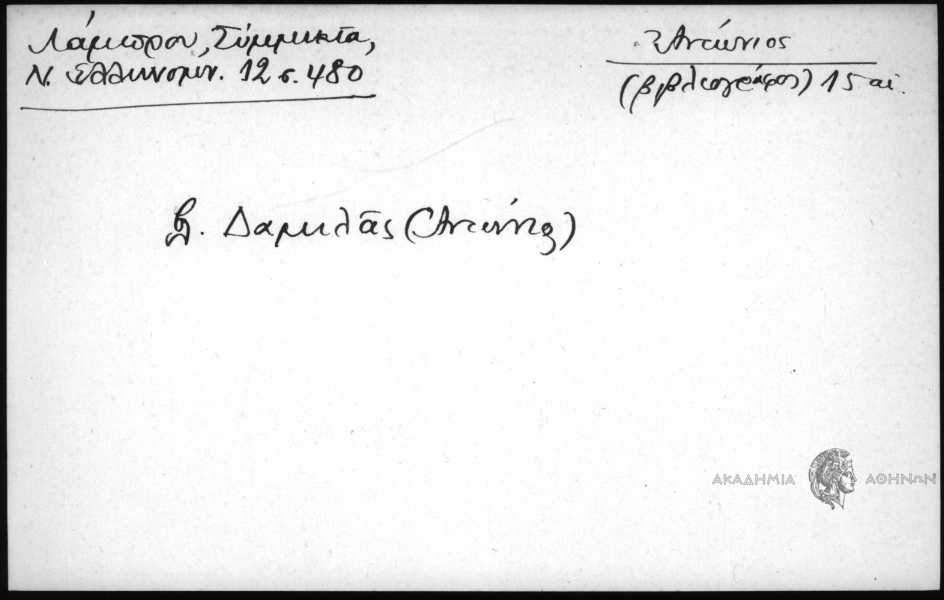 Λάμπρου, Σύμμικτα,
Ν. Ελληνομν. 12 σ. 480
Ἀντώνιος
(βιβλιογράφος) 15 αἰ.
βλ. Δαμιλᾶς (Ἀντώνιος)
ΑΚΑΔΗΜΙΑ ΑΘΗΝΩΝ